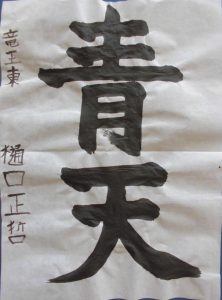 青天
竜王東
樋口正哲